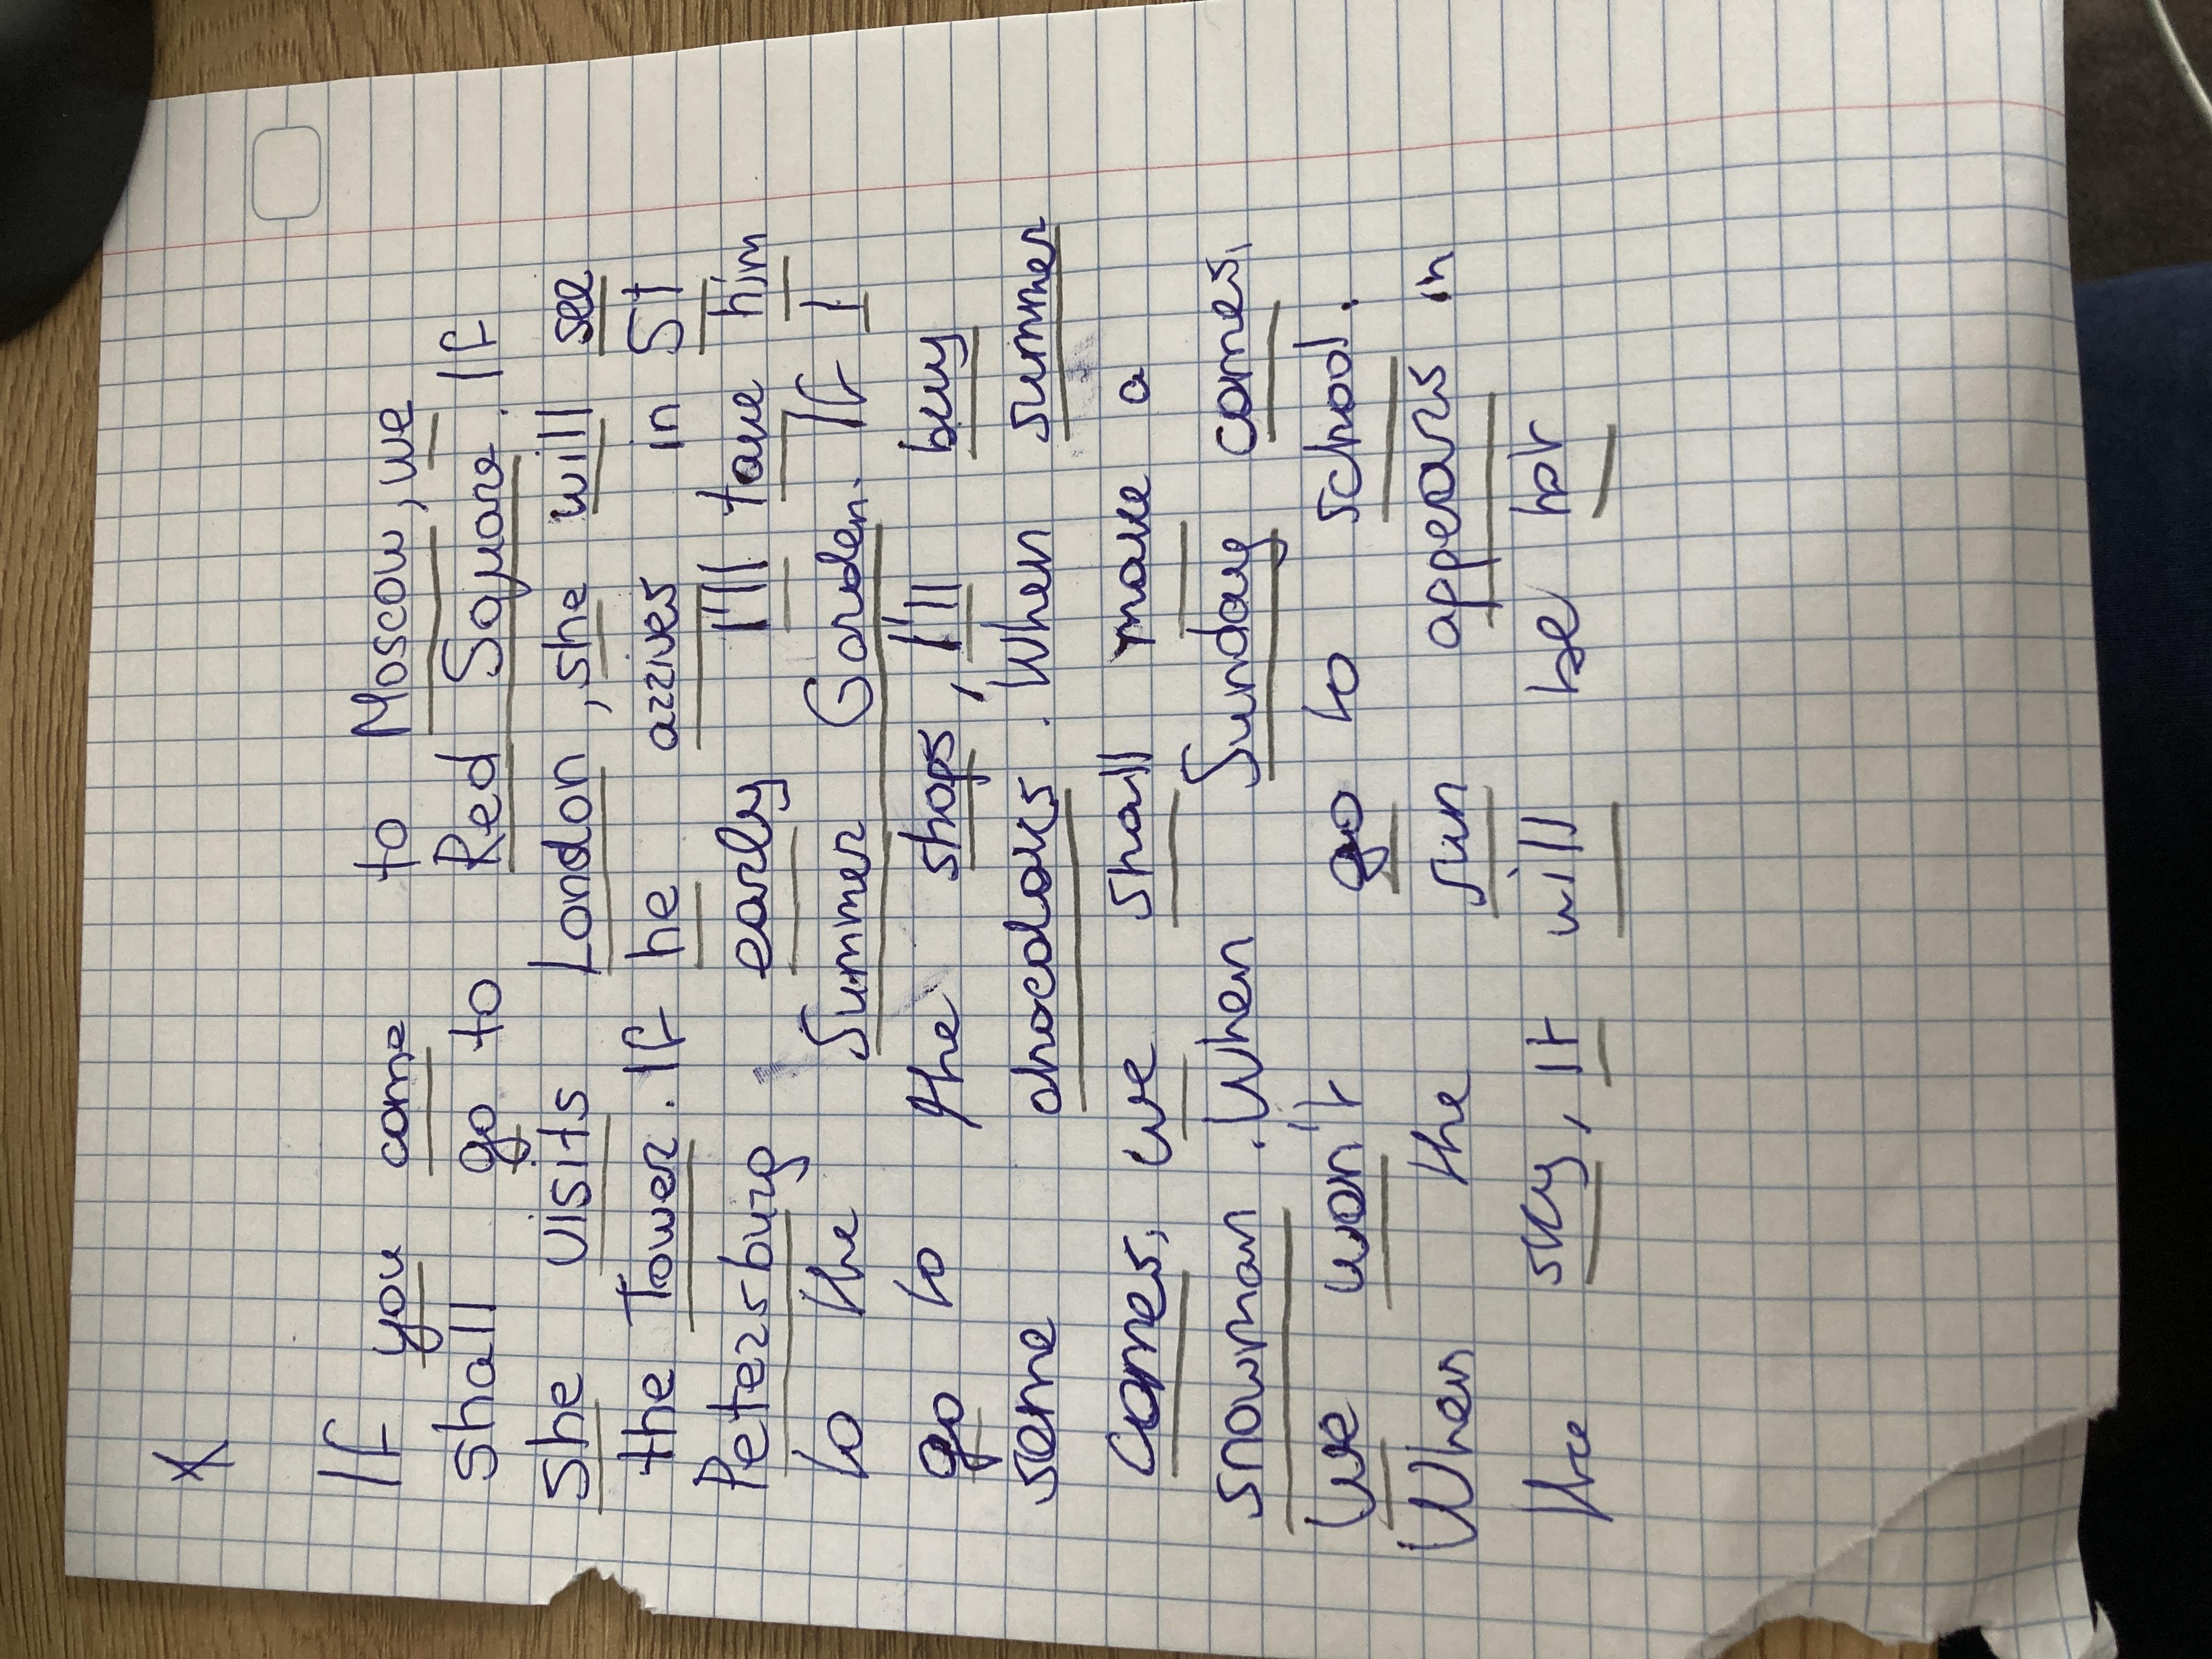 X
If you come to Moscow, we
shall go to Red Square. If
She visits London, she will see
the Tower. If he arrives in St
Petersburg early I'll take him
to the Summer Garden. If I
go to the shops, I'll buy
some chocolats. When summer
comes, we shall make a
snowman. When Sunday comes,
We won't go to school.
When the sun appears in
the sky, it will be hot